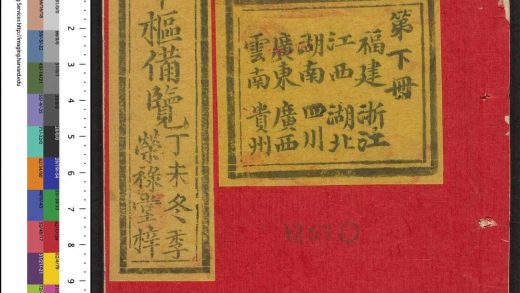 第下冊
福建 浙江
江西 湖北
湖南 四川
廣東 廣西
雲南 貴州
中樞備覽
丁未冬季
榮祿堂梓
2
3
4
5
6
7
8
9